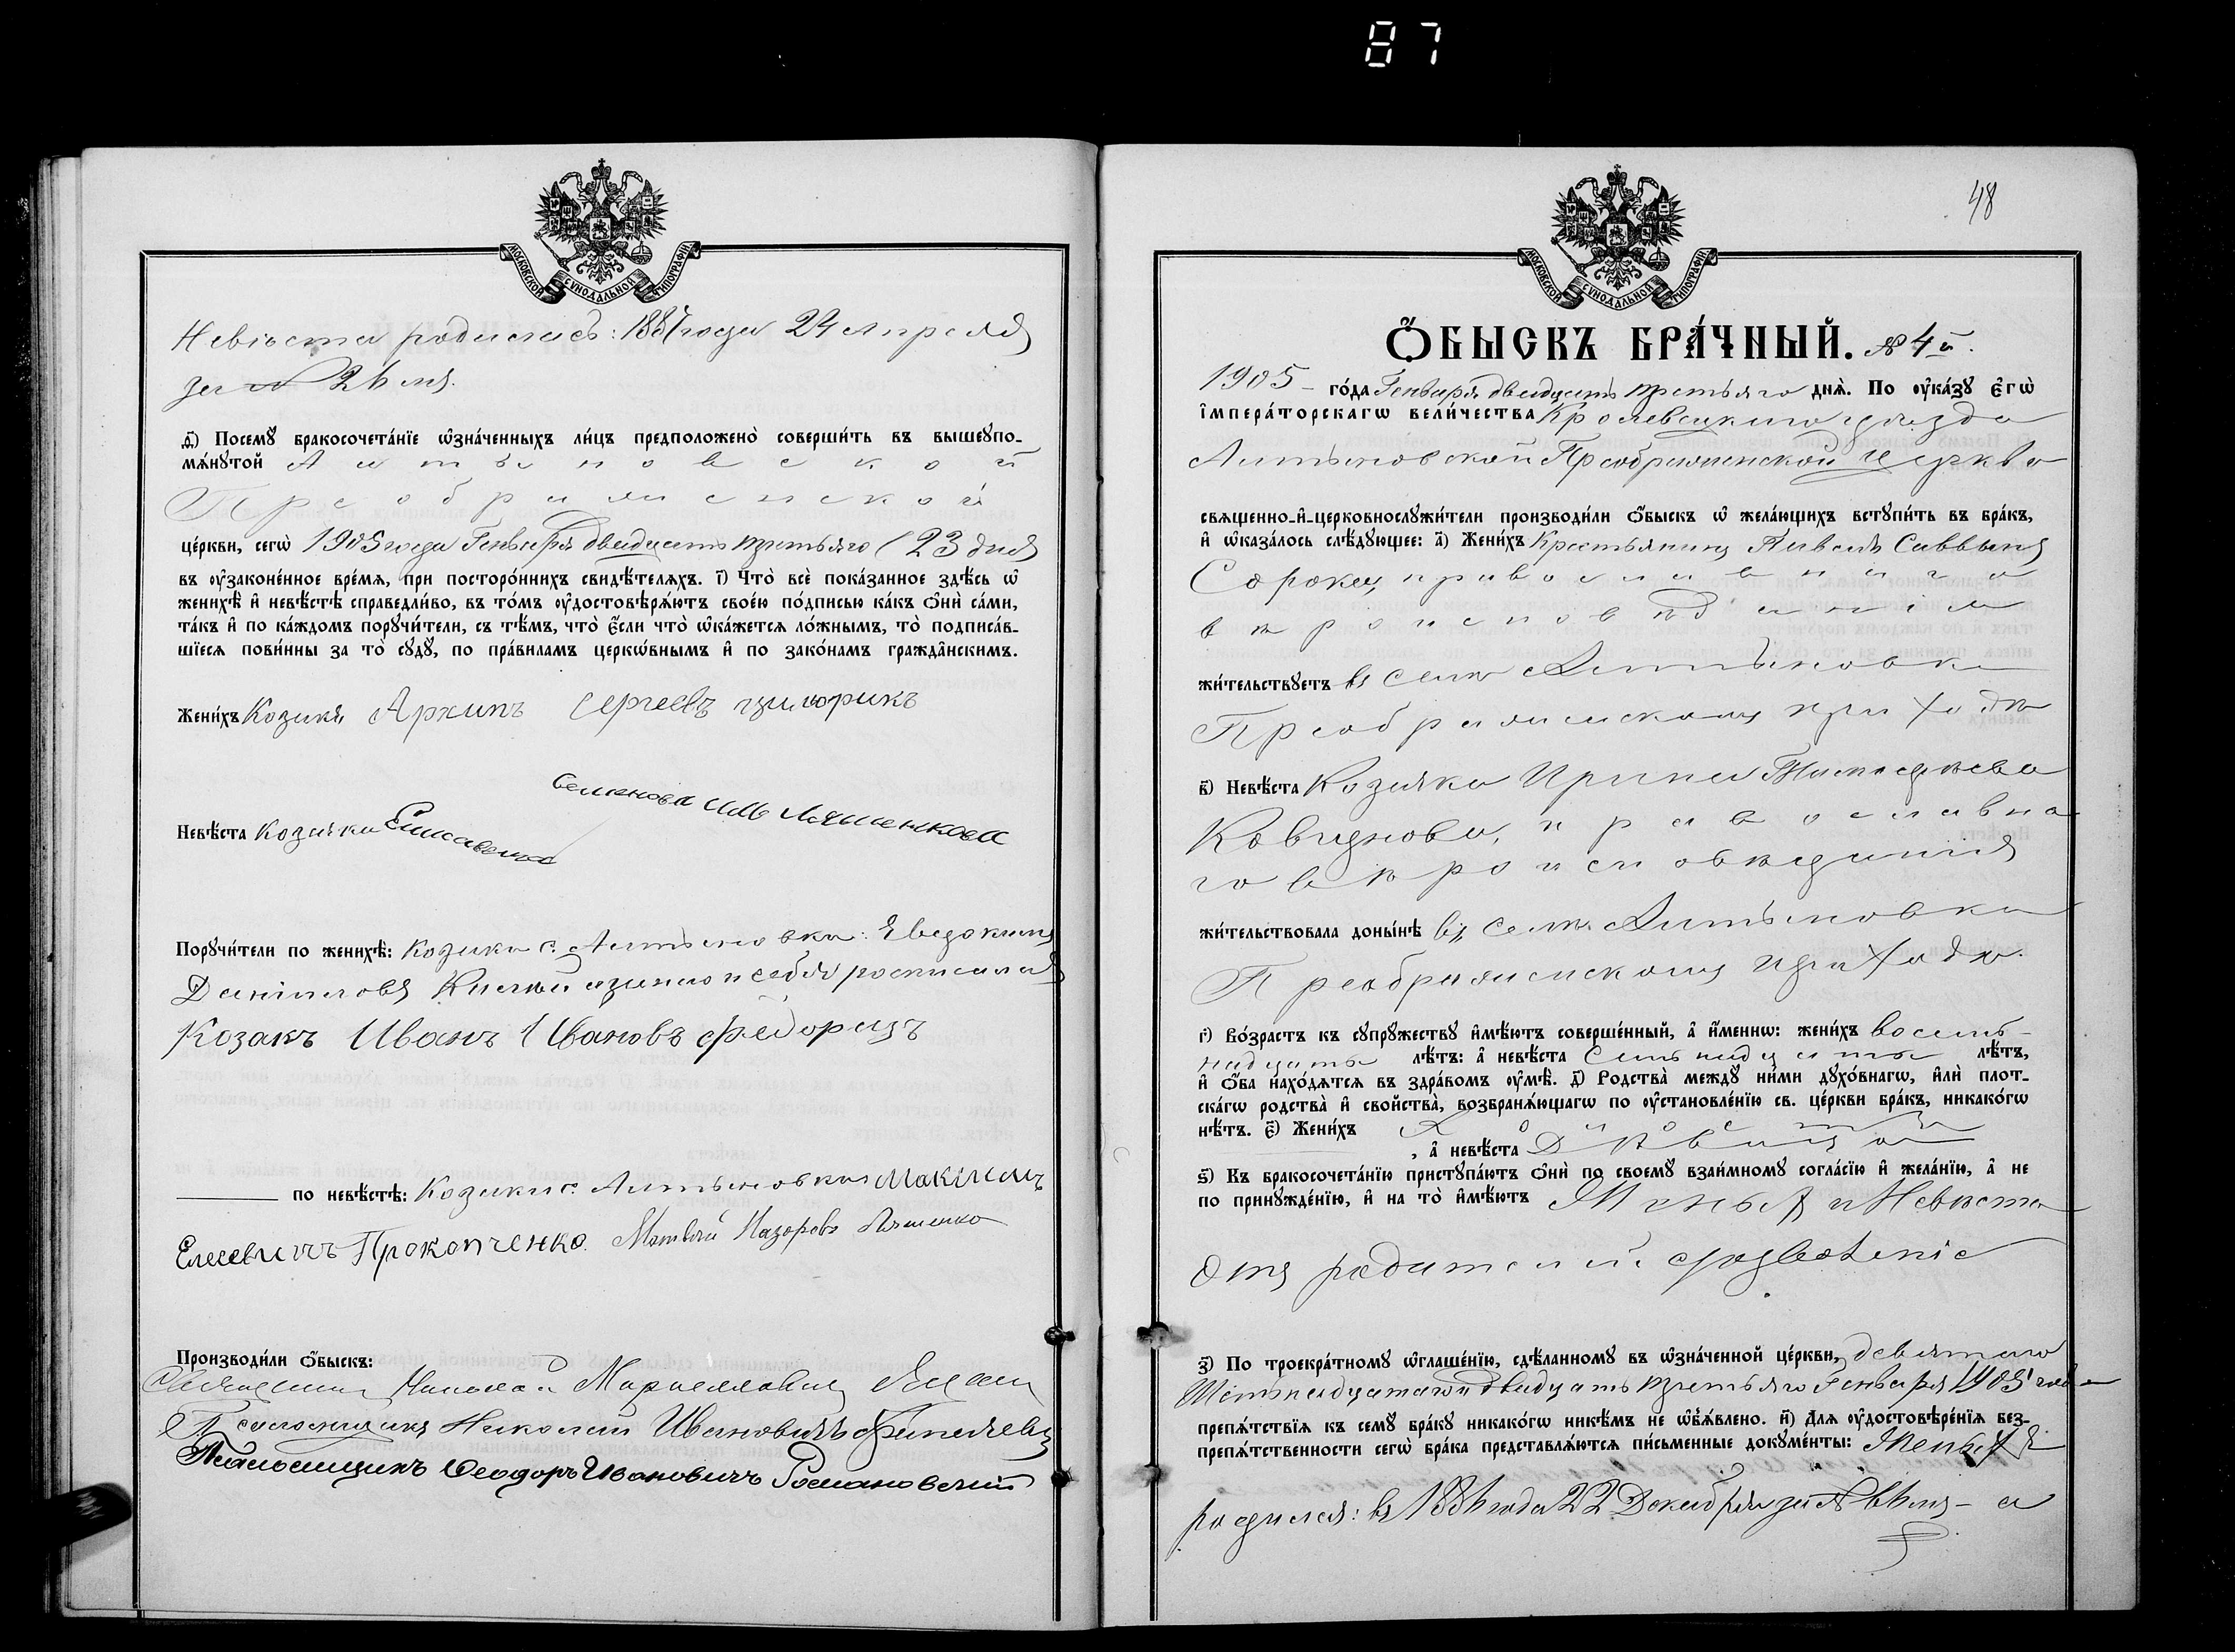 87
МОСКОВСКОЙ СѴНОДАЛЬНОЙ ТИПОГРАФІИ
Невѣста родилась: 1887 года 24 апрѣля
за №
д҃) Посемꙋ бракосочета́нїе ѡ҆зна́ченныхъ ли́цъ предположено̀ соверши́ть въ вышеꙋпо-
мѧ́нꙋтой Алтыновской
Преображенской
це́ркви, сегѡ̀ 1905 года Генваря двадцать третьяго (23 дня
въ ᲂу҆зако́ненное вре́мѧ, при посторо́ннихъ свидѣ́телѧхъ. і҃) Что̀ всѐ пока́занное здѣ́сь ѡ҆
женихѣ̀ и҆ невѣ́стѣ справедли́во, въ то́мъ ᲂу҆достовѣрѧ́ютъ свое́ю по́дписью ка́къ ѻ҆нѝ са́ми,
та́къ и҆ по ка́ждомъ порꙋчи́тели, съ тѣ́мъ, что̀ є҆́сли что̀ ѡ҆ка́жетсѧ ло́жнымъ, то̀ подписа́в-
шїесѧ пови́нны за то̀ сꙋдꙋ̀, по пра́виламъ церкѡ́внымъ и҆ по зако́намъ гражда́нскимъ.
Жени́хъ Козакъ Архипъ Сергеевъ Цилюрикъ
Невѣ́ста Козачка Елисавета
Семенова Ляшенкова
Порꙋчи́тели по женихѣ̀: Козаки с. Алтыновки: Евдокимъ
Даниловъ за себя росписался
Козакъ Иванъ Ивановъ Федорецъ
по невѣ́стѣ: Козаки с. Алтыновки Макснмъ
Елесевичъ Прокопченко. Матвей Назоровъ Ляшенко
Производи́ли ѻ҆́быскъ:
Священникъ Николай
Псаломщикъ Николай Ивановичъ
Псаломщикъ Феодоръ Ивановичъ Романовский
48
МОСКОВСКОЙ СѴНОДАЛЬНОЙ ТИПОГРАФІИ
Ѻ҆́БЫСКЪ БРА́ЧНЫЙ. № 4й.
1905 – го́да Генваря двадцать третьяго днѧ̀. По ᲂу҆ка́зꙋ є҆гѡ̀
і҆мпера́торскагѡ вели́чества Кролевецкаго уѣзда
Алтыновской Преображенской Церкви
свѧщенно-и҆-церковнослꙋжи́тели производи́ли ѻ҆́быскъ ѡ҆ жела́ющихъ встꙋпи́ть въ бра́къ,
и҆ ѡ҆каза́лось слѣ́дꙋющее: а҃) Жени́хъ Крестьянинъ Павелъ Саввинъ
Сорока, православнаго
вѣроисповѣданія
жи́тельствꙋетъ въ селѣ Алтыновкѣ
Преображенскому приходѣ
в҃) Невѣ́ста Козачка Ирина Тимофѣева
православна
го вѣроисповѣданія
жи́тельствовала доны́нѣ въ селѣ Алтыновки
Преображенскому приходѣ.
г҃) Во́зрастъ къ сꙋпрꙋ́жествꙋ и҆мѣ́ютъ соверше́нный, а҆ и҆́меннѡ: жени́хъ восемь-
надцать лѣ́тъ: а҆ невѣ́ста семьнадцать лѣ́тъ,
и҆ ѻ҆́ба нахо́дѧтсѧ въ здра́вомъ ᲂу҆мѣ̀. д҃) Родства̀ междꙋ̀ ни́ми дꙋхо́внагѡ, и҆лѝ плот-
ска́гѡ родства̀ и҆ сво́йства, возбранѧ́ющагѡ по ᲂу҆становле́нїю св. це́ркви бра́къ, никако́гѡ
нѣ́тъ. є҃) Жени́хъ Холостъ
, а҆ невѣ́ста Дѣвица
ѕ҃) Къ бракосочета́нїю пристꙋпа́ютъ ѻ҆нѝ по своемꙋ̀ взаи́мномꙋ согла́сїю и҆ жела́нїю, а҆ не
по принꙋжде́нїю, и҆ на то̀ и҆мѣ́ютъ Женихъ и Невѣста
отъ родителей дозволеніе
з҃) По троекра́тномꙋ ѡ҆глаше́нїю, сдѣ́ланномꙋ въ ѡ҆зна́ченной це́ркви, девятаго
Шестнадцатаго и двадцать третьяго Генваря 1905 года
препѧ́тствїѧ къ семꙋ̀ бра́кꙋ никако́гѡ никѣ́мъ не ѡ҆б̾ѧ́влено. и҃) Длѧ̀ ᲂу҆достовѣре́нїѧ без-
препѧ́тственности сегѡ̀ бра́ка представлѧ́ютсѧ пи́сьменные докꙋме́нты: Женихъ
родился: въ 1886 года 22 Декабря за № а